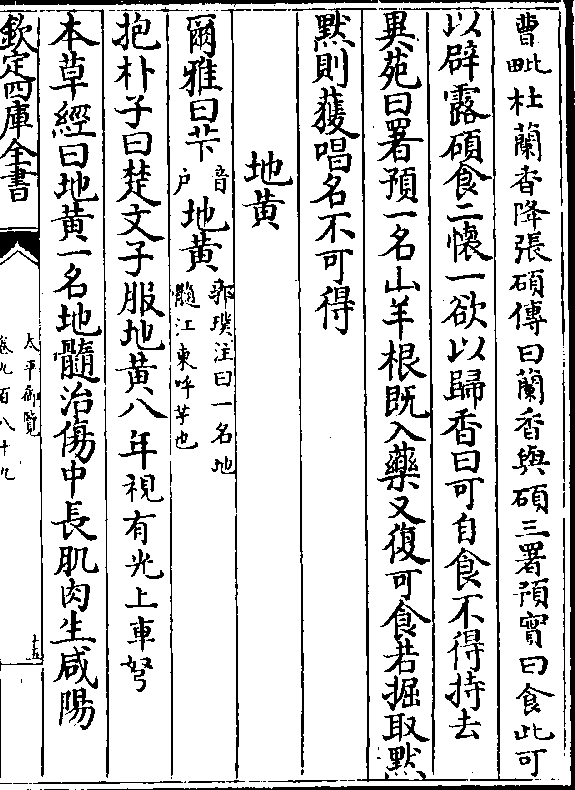 曹毗杜蘭香降張碩傳曰蘭香與碩三署預實曰食此可
以辟露碩食二懷一欲以歸香曰可自食不得持去
異苑曰署預一名山羊根既入藥又復可食若掘取黙
黙則獲唱名不可得
地黄
爾雅曰芐音户地黄郭璞注曰一名地髓江東呼芐也
抱朴子曰楚文子服地黄八年視有光上車弩
本草經曰地黄一名地髓治傷中長肌肉生咸陽
欽定四庫全書
太平御覽
卷九百八十九
十五